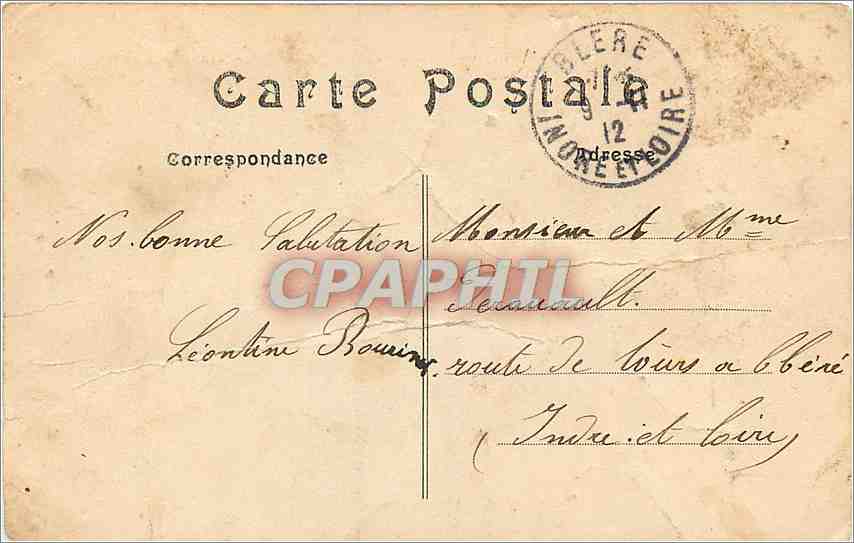 Carte Postale
BLERE
9 - 11
12
INDRE ET LOIRE
Correspondance
Adresse
Nos. bonne Salutation
Léontine
Monsieur et Mme
route de tours a bléré
(Indre et loire)
CPAPHIL